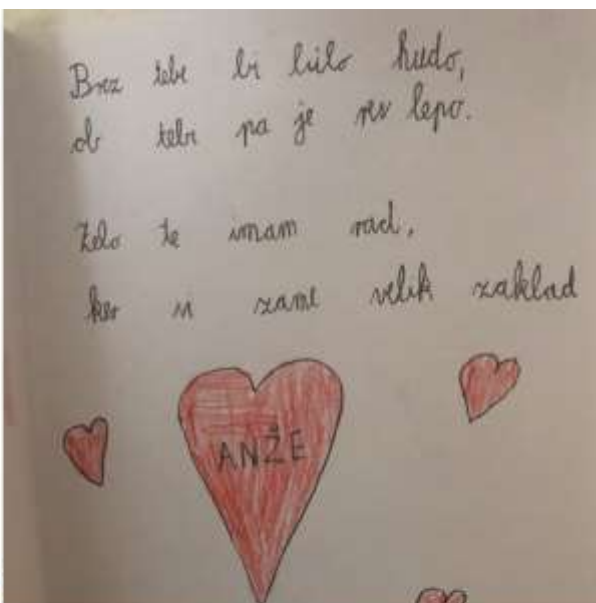 Brez tebe bi bilo hudo,
ob tebi pa je res lepo.
Zelo te imam rad,
ker si zame velik zaklad
ANŽE